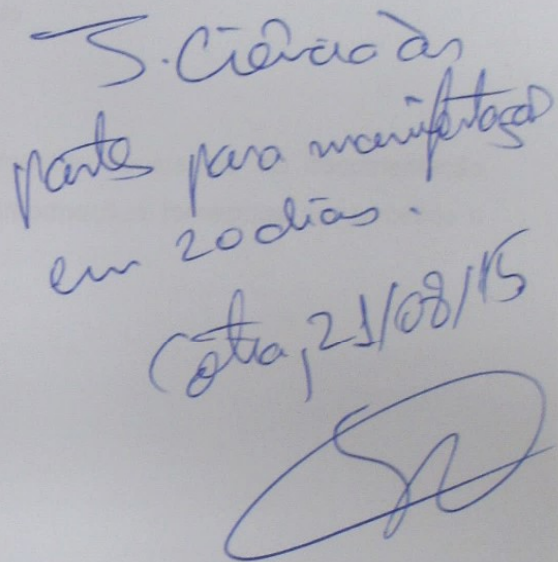 J. Ciência às
partes para manifestação
em 20 dias.
Cotia, 21/08/15